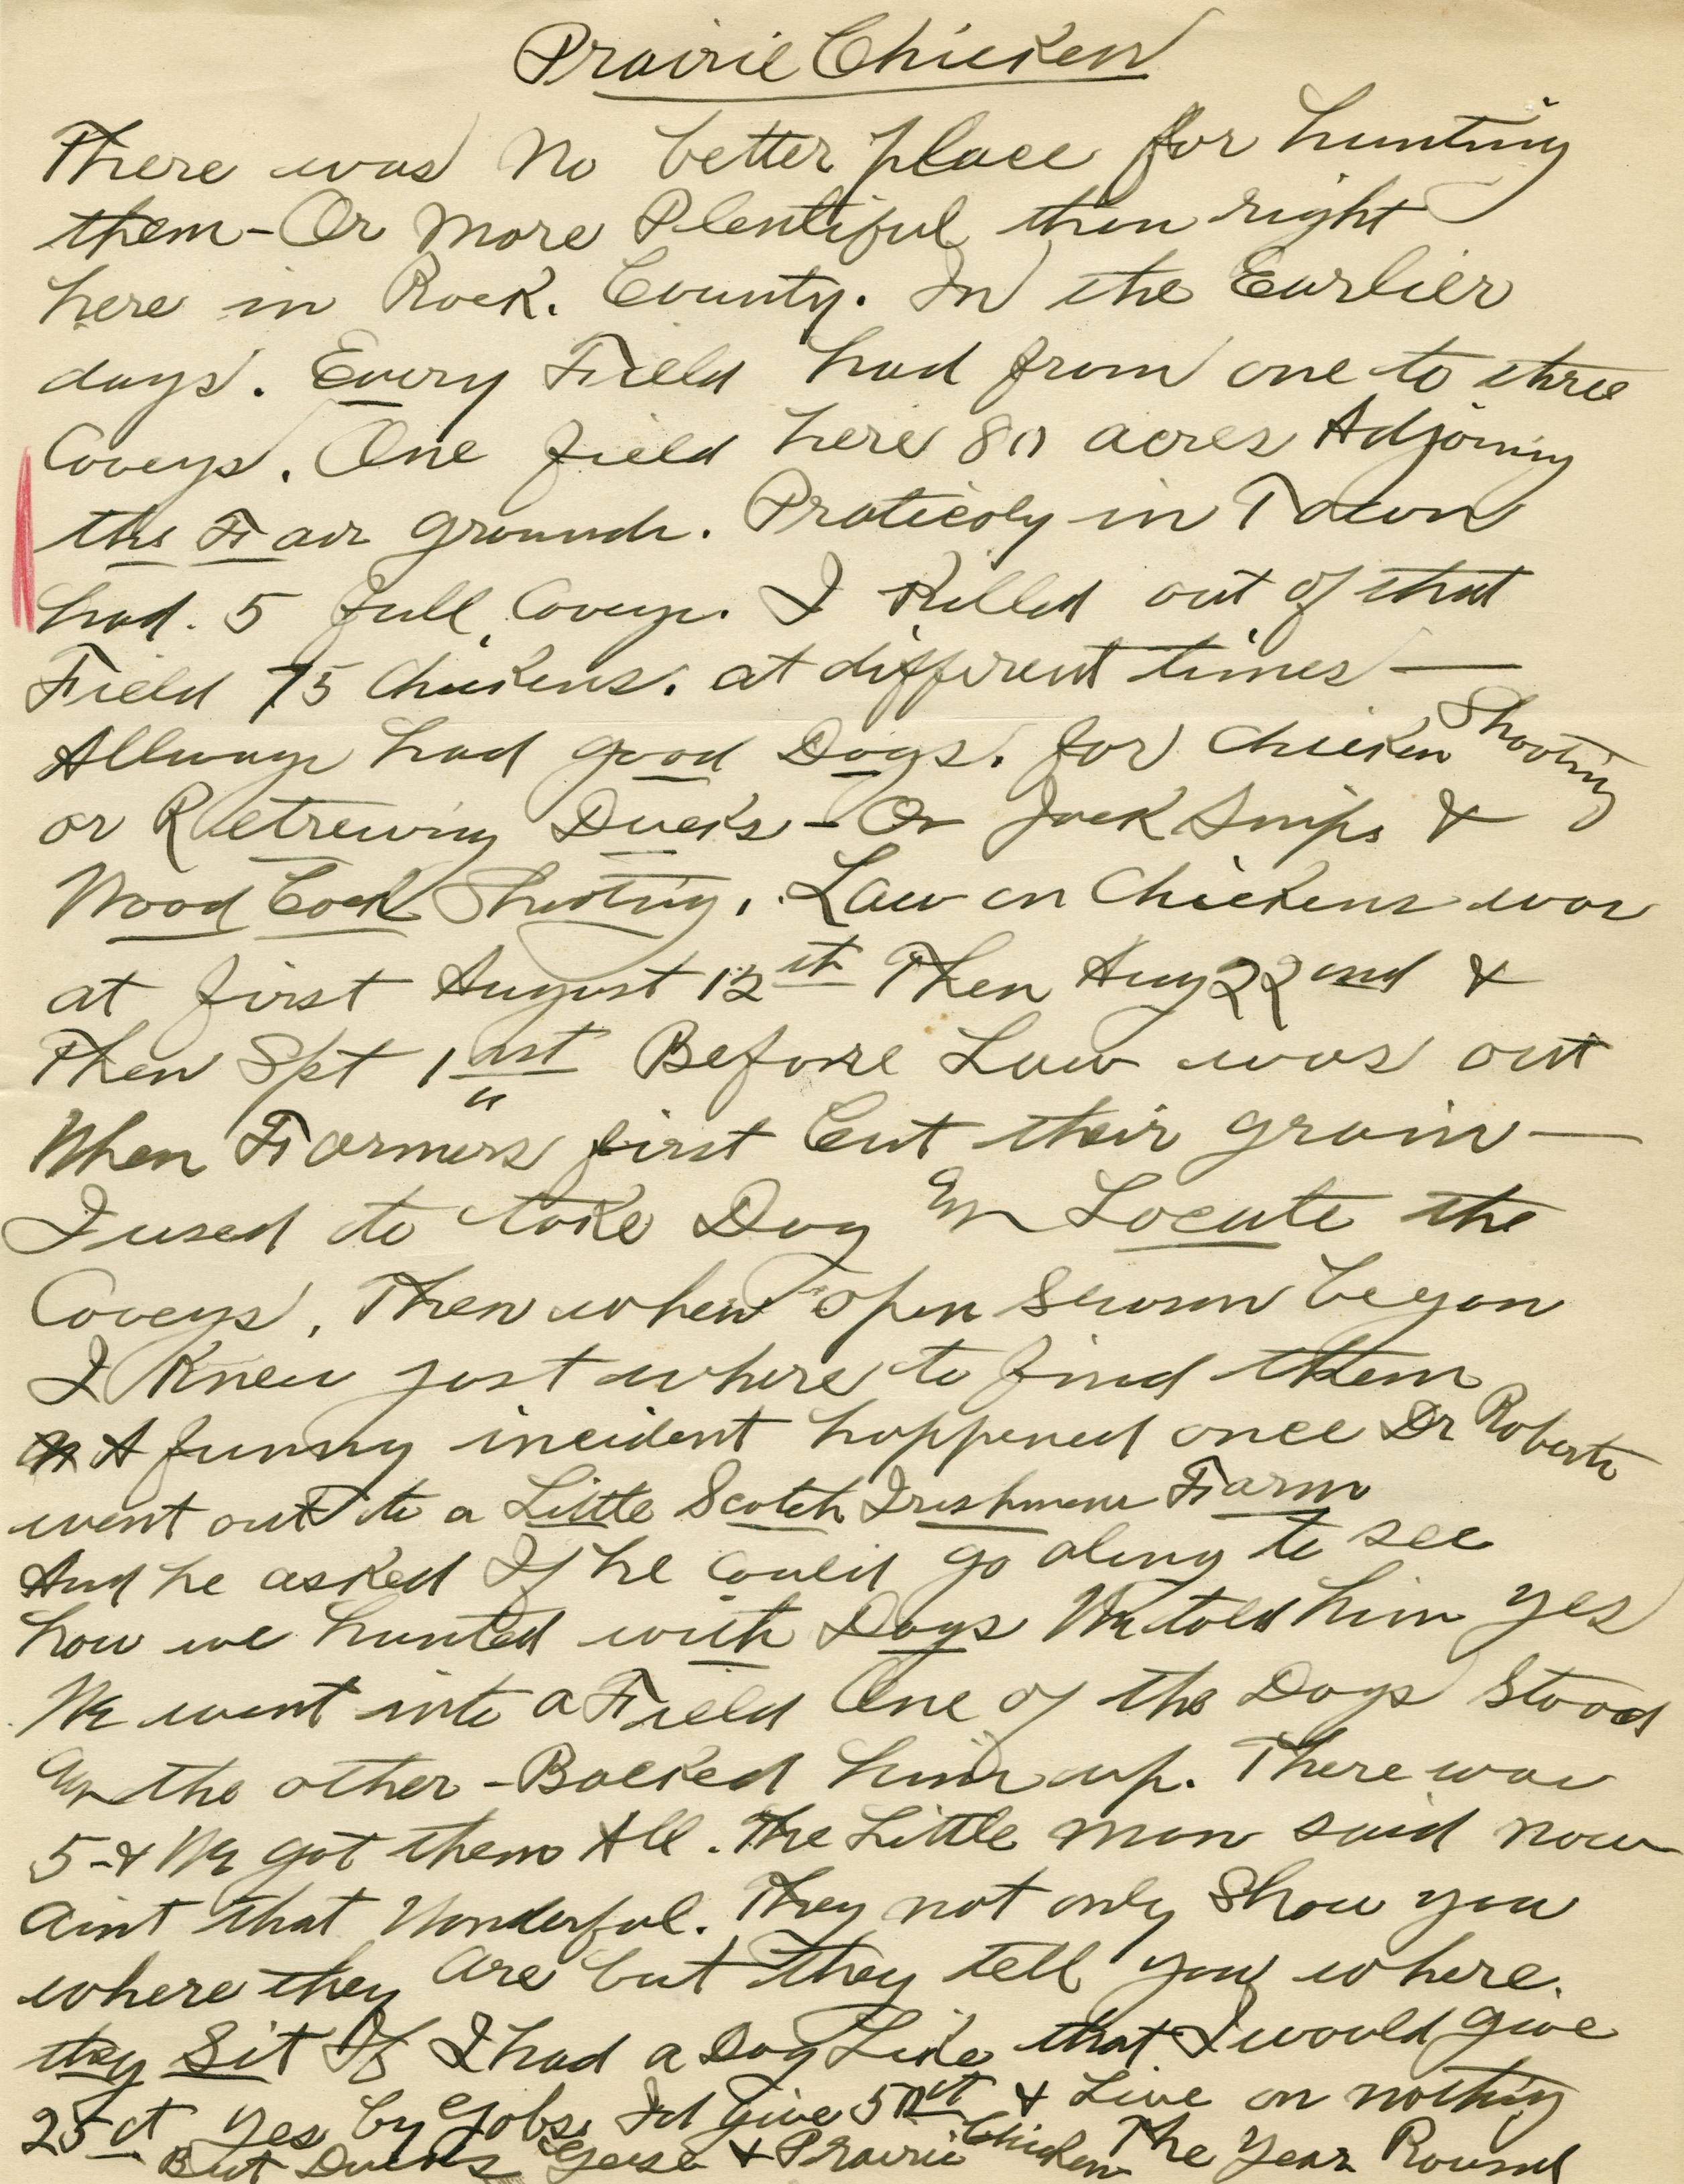 Prairie Chicken
There was No better place for hunting
them - Or More Plentiful then right
here in Rock. County. In the Earlier
days. Every Field had from one to three
Coveys. One field here 80 acres Adjoining
the Fair grounds. Praticoly in Town
had. 5 full Coveys. I Killed out of that
Field 75 Chickens. at different times —
Allways had good Dogs. for Chicken Shooting
or Retreiving Ducks - Or Jack Snips &
Wood Cock Shooting. Law on Chickens was
at first August 12th Then Aug 22nd &
Then Spt 1st Before Law was out
When Farmers first Cut their grain —
I used to take Dog An Locate the
Coveys. Then when open Season began
I Knew just where to find them
A funny incident happened once Dr Roberts
went out to a Little Scotch Irishmens Farm
And he asked If he Could go along to see
how we hunted with Dogs We told him yes
We went into a Field One of the Dogs Stood
An the other - Backed him up. There was
5 - & We got them All. The Little man said now
aint that Wonderful. They not only Show you
where they are but they tell you where.
they Sit If I had a Dog Like that I would give
25ct Yes by Gobs. Id give 50ct & Live on nothing
But Ducks Geese & Prairie Chicken The Year Round